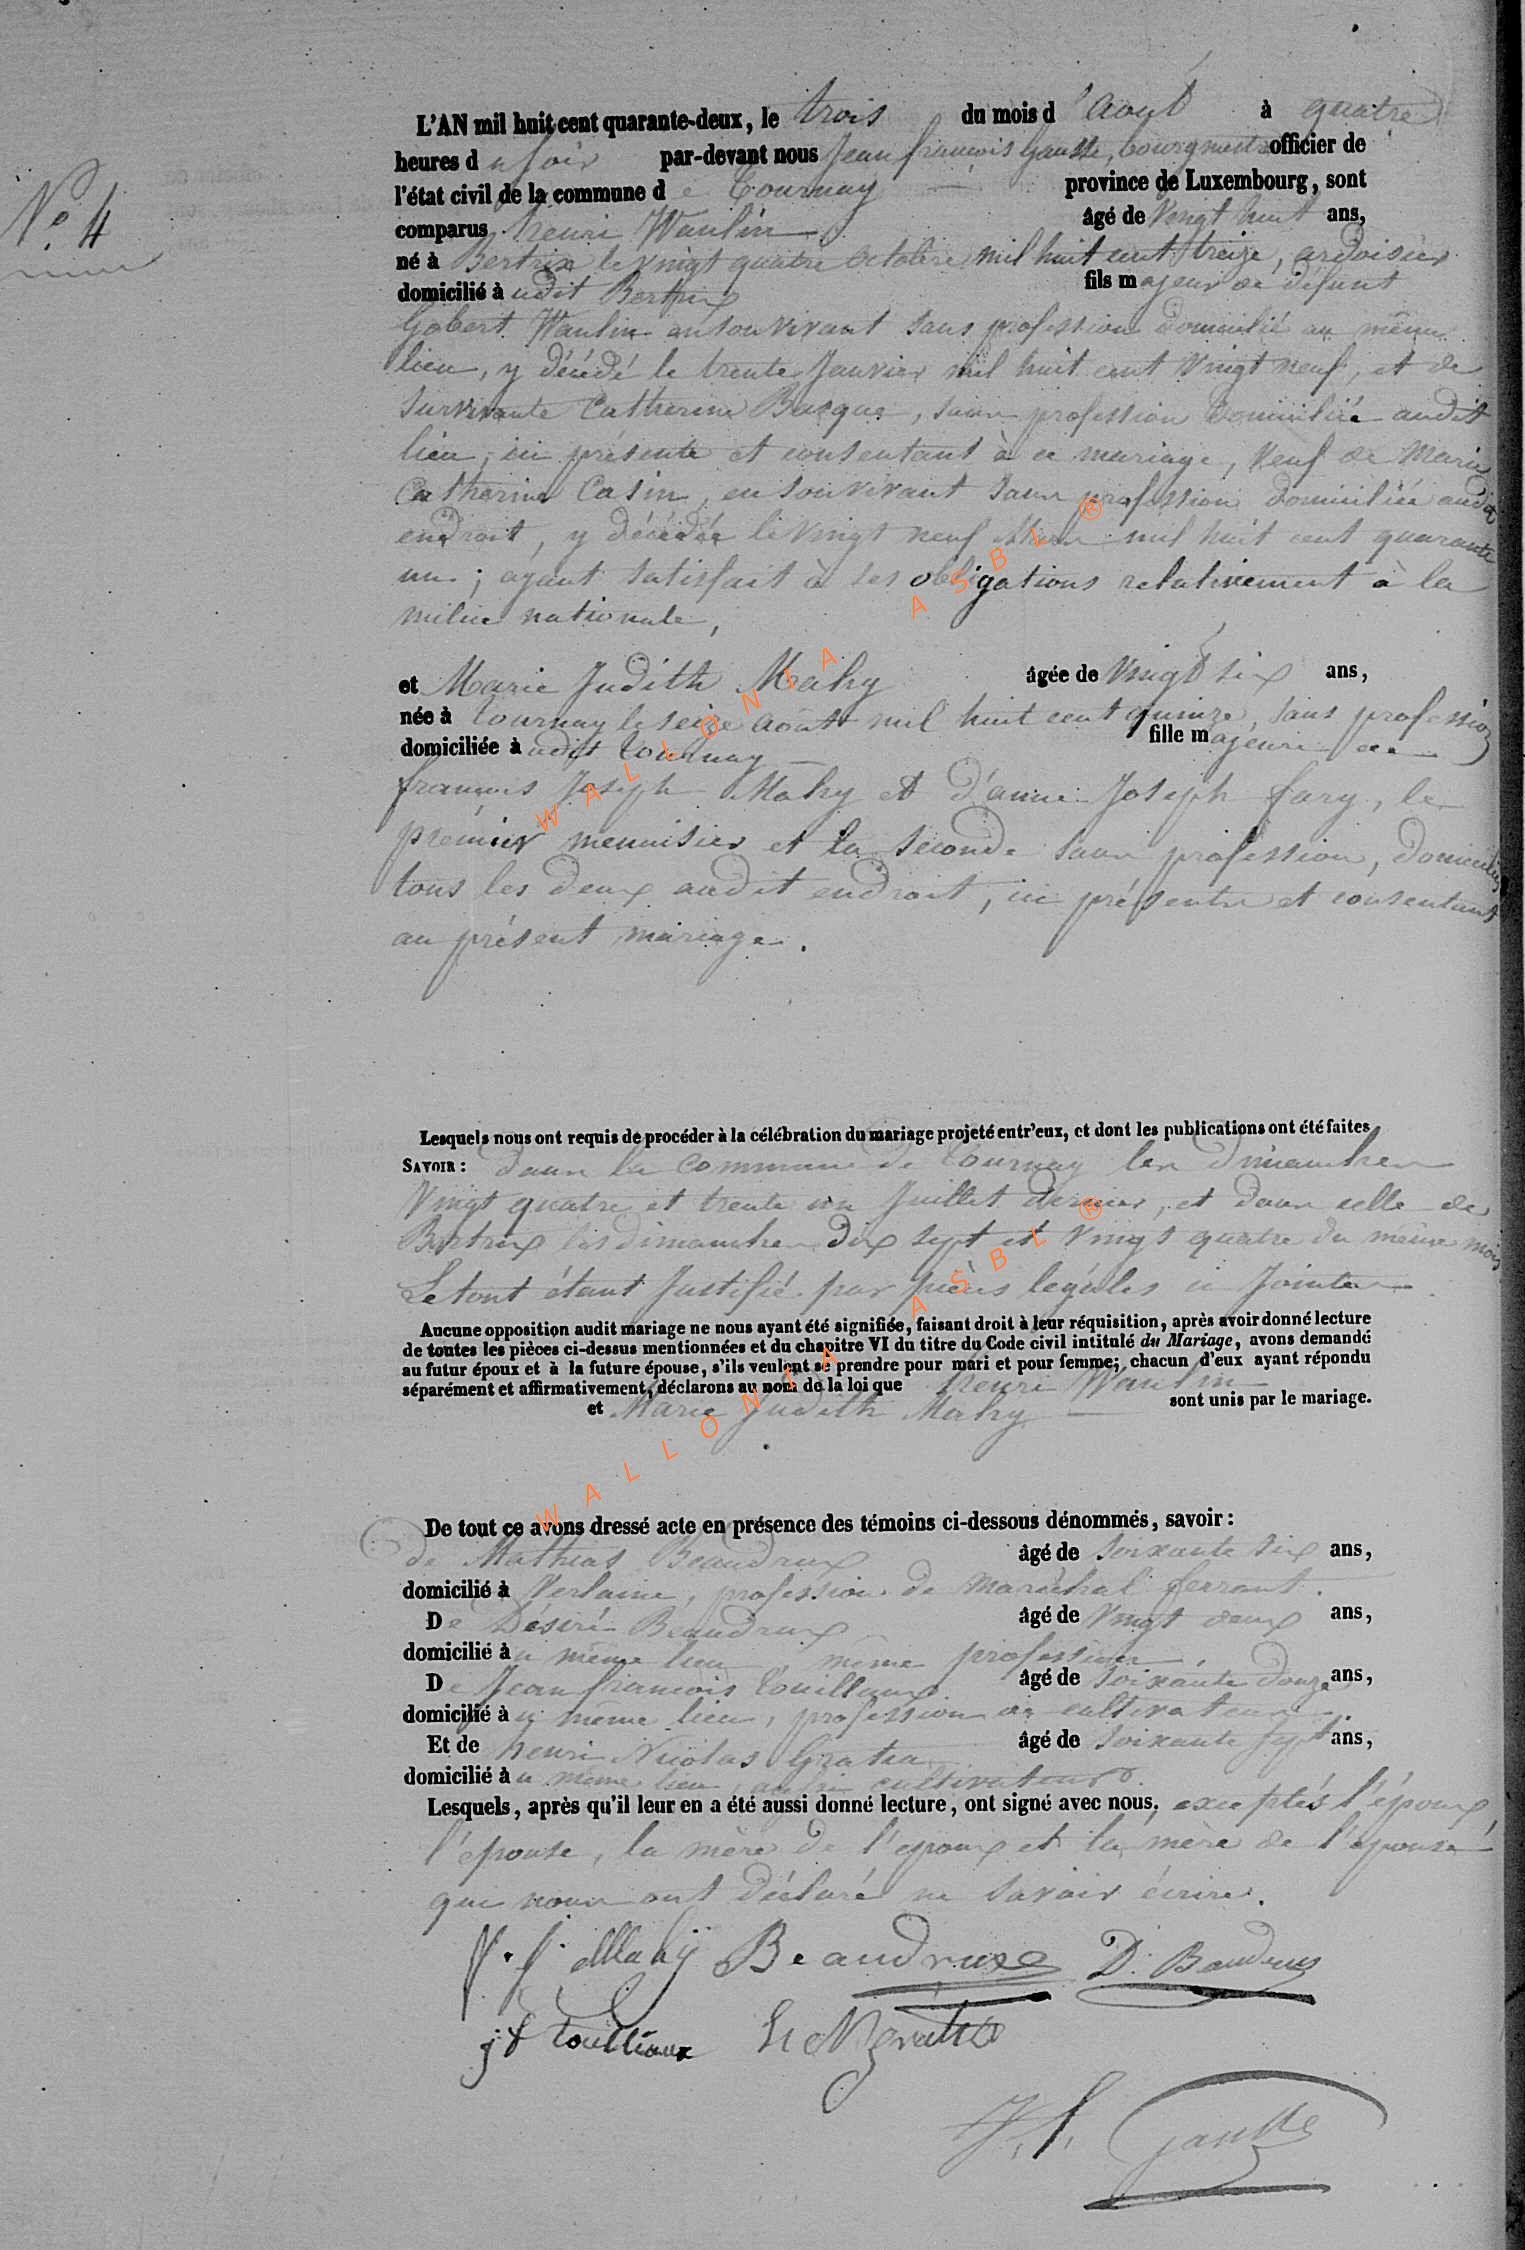 L'AN mil huit cent quarante-deux, le trois du mois d'août à quatre
heures du soir par-devant nous Jean françois Gauste, bourgmestre officier de
l'état civil de la commune de Tournay province de Luxembourg, sont
N° 4
comparus henri Waulin âgé de Vingt huit ans,
né à Bertrix le vingt quatre octobre mil huit cent treize, ardoisier
domicilié audit Bertrix fils majeur de défunt
Gobert Waulin en son vivant sans profession domicilié au même
lieu, y décédé le trente Janvier mil huit cent Vingt neuf, et de
survivante Catherine Basque, sans profession domiciliée audit
lieu, ici présente et consentant à ce mariage, Veuf de Marie
Catherine Casin, en son vivant sans profession domiciliée audit
endroit, y décédée le Vingt neuf Mars mil huit cent quarante
un ; ayant satisfait à ses obligations relativement à la
milice nationale,
et Marie Judith Mahy âgée de Vingt six ans,
née à Tournay le seize août mil huit cent quinze, sans profession
domiciliée audit Tournay fille majeure de
françois Joseph Mahy et d'anne Joseph fary, le
premier menuisier et la seconde sans profession, domiciliés
tous les deux audit endroit, ici présents et consentant
au présent mariage.
Lesquels nous ont requis de procéder à la célébration du mariage projeté entr'eux, et dont les publications ont été faites
SAVOIR : dans la commune de Tournay les dimanches
Vingt quatre et trente un Juillet dernier, et dans celle de
Bertrix les dimanches dix sept et Vingt quatre du même mois
Le tout étant Justifié par pièces légales ci Jointes
Aucune opposition audit mariage ne nous ayant été signifiée, faisant droit à leur réquisition, après avoir donné lecture
de toutes les pièces ci-dessus mentionnées et du chapitre VI du titre du Code civil intitulé du Mariage, avons demandé
au futur époux et à la future épouse, s'ils veulent se prendre pour mari et pour femme; chacun d'eux ayant répondu
séparément et affirmativement, déclarons au nom de la loi que henri Waulin
et Marie Judith Mahy sont unis par le mariage.
De tout ce avons dressé acte en présence des témoins ci-dessous dénommés, savoir :
de Mathias Beaudrux âgé de soixante six ans,
domicilié à Verlaine, profession de maréchal ferrant.
De Désiré Beaudrux âgé de Vingt deux ans,
domicilié au même lieu, même profession.
De Jean françois Touillaux âgé de soixante douze ans,
domicilié au même lieu, profession de cultivateur.
Et de henri Nicolas Gratia âgé de soixante sept ans,
domicilié au même lieu, aussi cultivateur.
Lesquels, après qu'il leur en a été aussi donné lecture, ont signé avec nous, exceptés l'époux,
l'épouse, la mère de l'époux et la mère de l'épouse
qui nous ont déclaré ne savoir écrire.
f. J. Mahÿ Beaudrux D. Baudrux
j f Touilliaux H N Gratia
J. f. Gauste
WALLONIA ASBL ®
WALLONIA ASBL ®